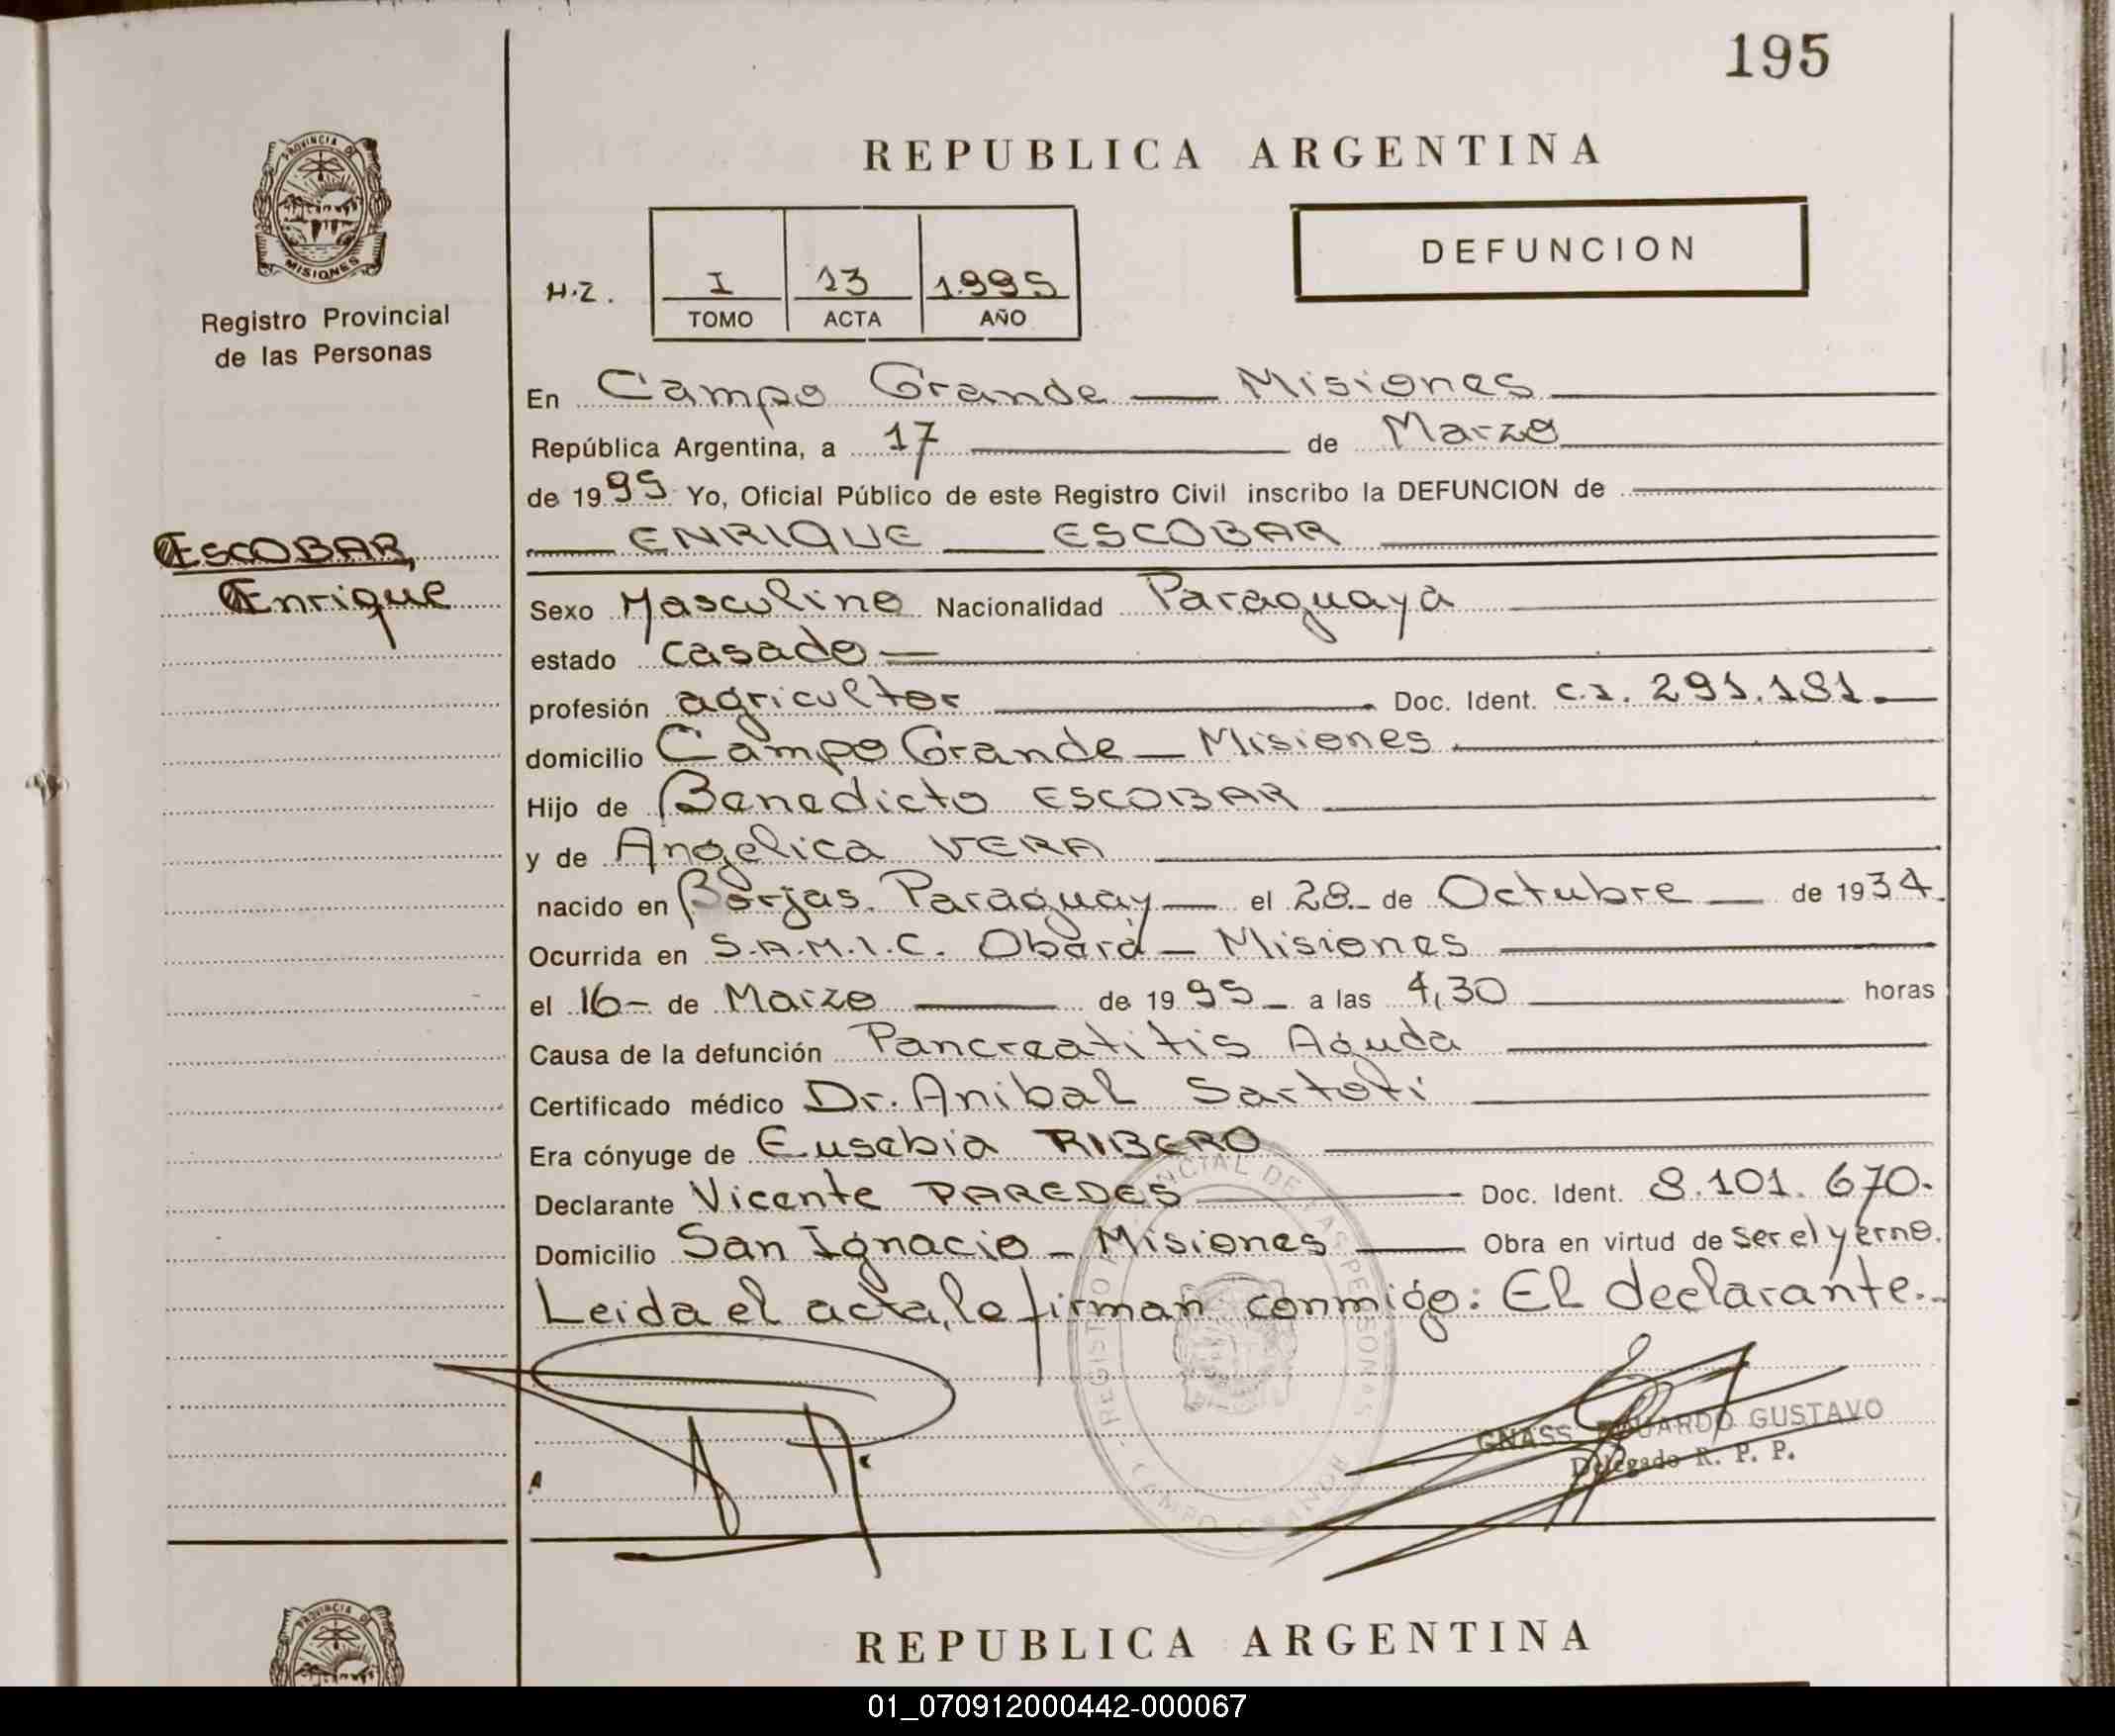 195
REPUBLICA ARGENTINA
PROVINCIA DE
MISIONES
Registro Provincial
de las Personas
DEFUNCION
H.Z. I 13 1.995
TOMO ACTA AÑO
En Campo Grande — Misiones
República Argentina, a 17 de Marzo
de 1995 Yo, Oficial Público de este Registro Civil inscribo la DEFUNCION de
ENRIQUE — ESCOBAR
ESCOBAR,
Enrique
Sexo Masculino Nacionalidad Paraguaya
estado casado —
profesión agricultor Doc. Ident. C.I. 291.181.
domicilio Campo Grande — Misiones
Hijo de Benedicto ESCOBAR
y de Angelica VERA
nacido en Borjas. Paraguay — el 28 de Octubre — de 1934.
Ocurrida en S.A.M.I.C. Oberá — Misiones
el 16 — de Marzo de 1995 — a las 4,30 horas
Causa de la defunción Pancreatitis Aguda
Certificado médico Dr. Anibal Sartori
Era cónyuge de Eusebia RIBERO
Declarante Vicente PAREDES Doc. Ident. 8.101.670.
Domicilio San Ignacio — Misiones Obra en virtud de ser el yerno.
Leida el acta, la firman conmigo: El declarante.
REGISTRO PROVINCIAL DE LAS PERSONAS
CAMPO GRANDE
GNASS EDUARDO GUSTAVO
Delegado R. P. P.
PROVINCIA DE
REPUBLICA ARGENTINA
01_070912000442-000067